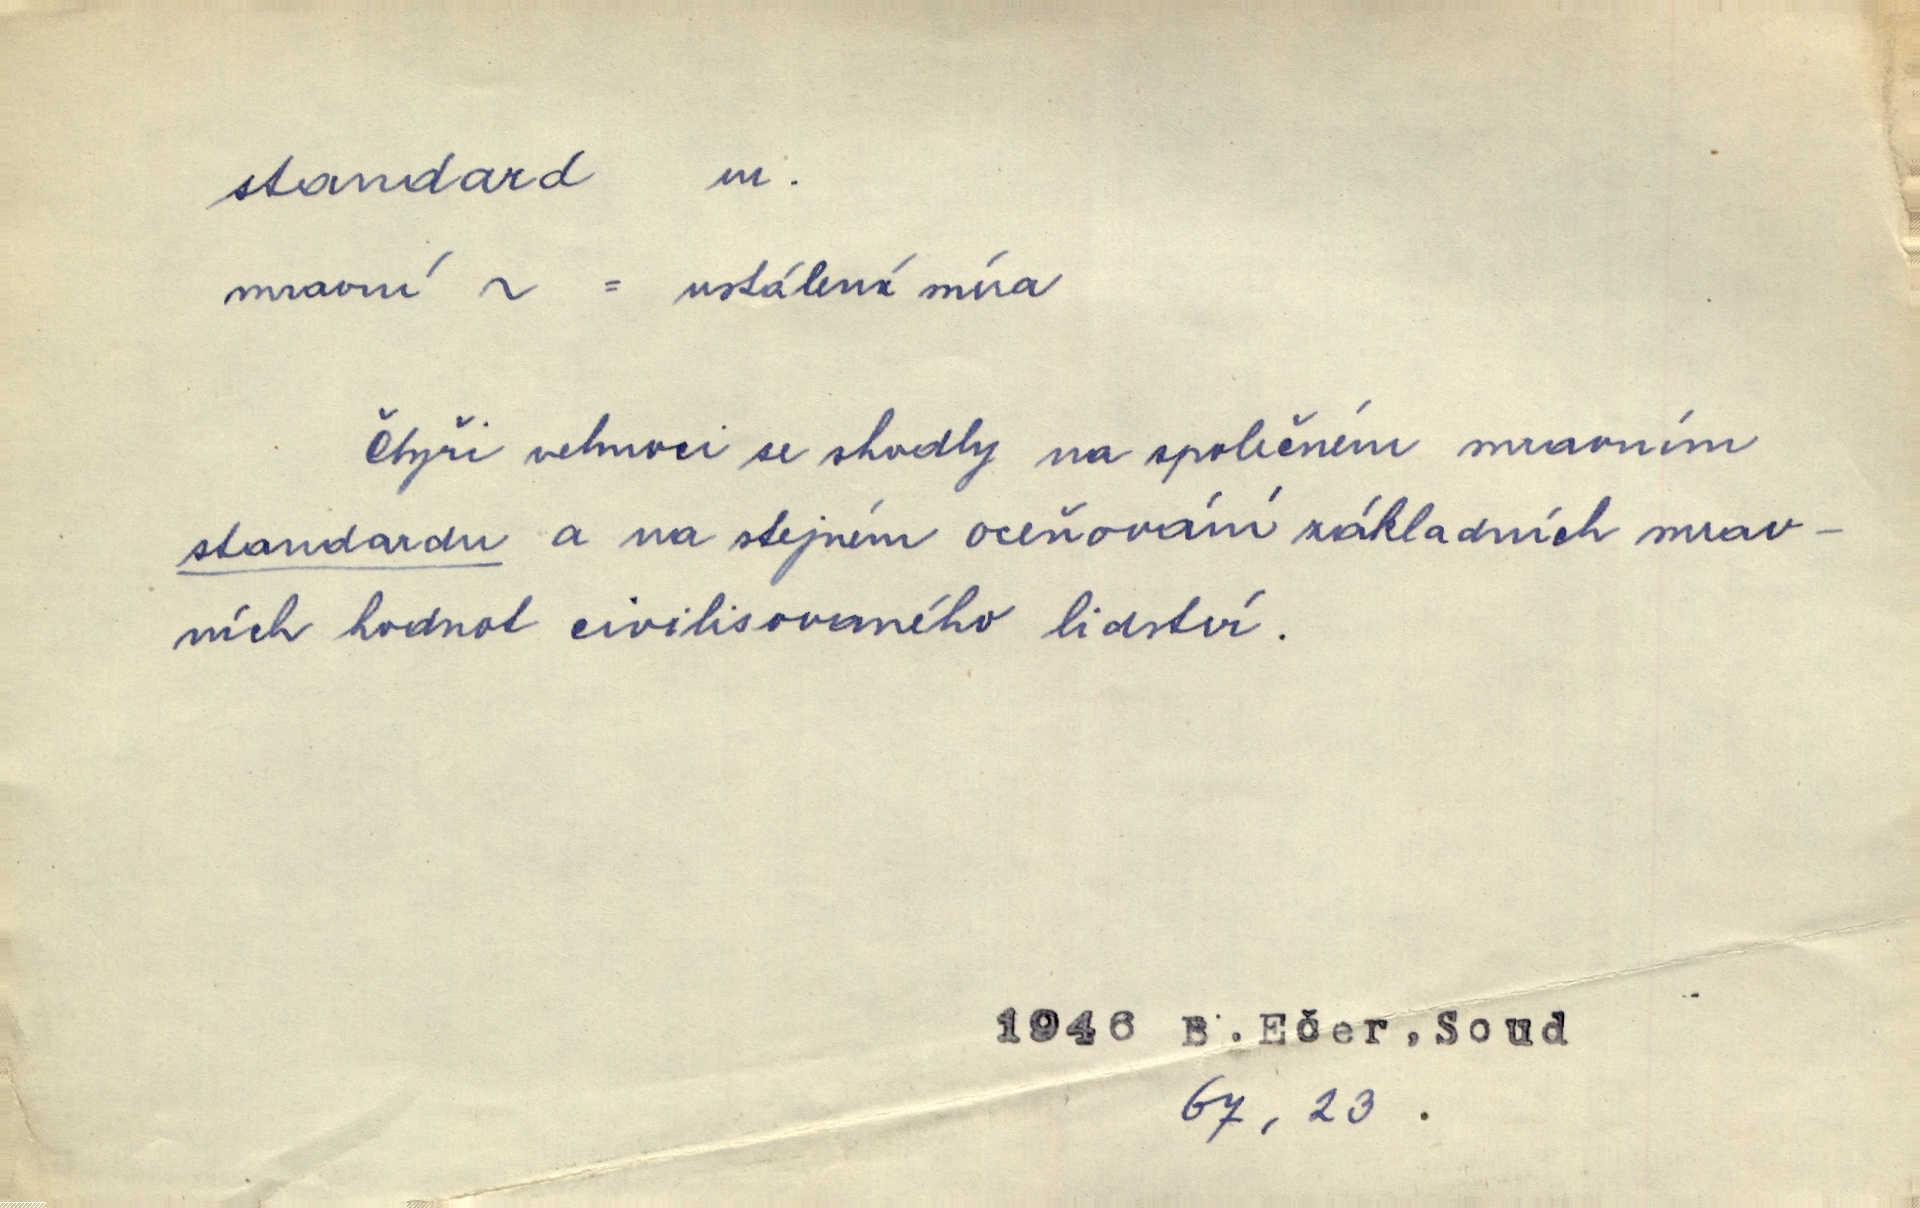 standard m.
mravní ~ = ustálená míra
Čtyři velmoci se shodly na společném mravním
standardu a na stejném oceňování základních mrav-
ních hodnot civilisovaného lidství.
1946 B.Ečer, Soud
67, 23.